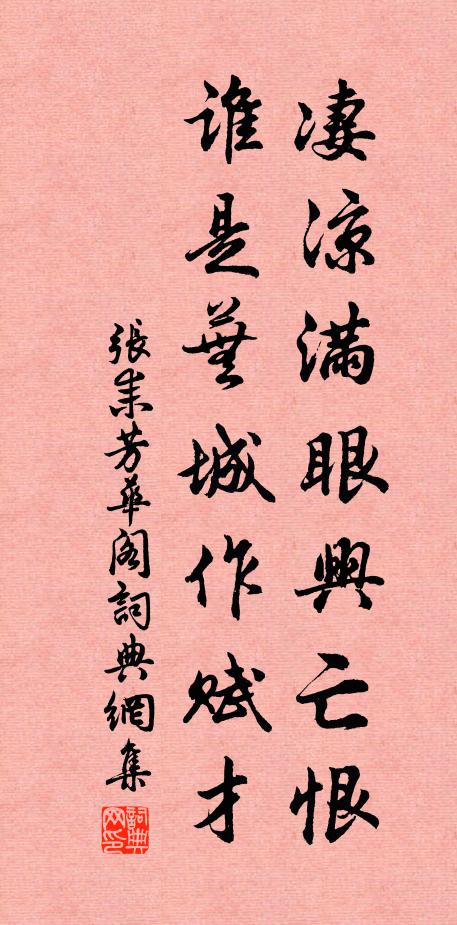 凄涼滿眼興亡恨
誰是蕪城作賦才
張耒芳華閣詞典網集
詞典网印